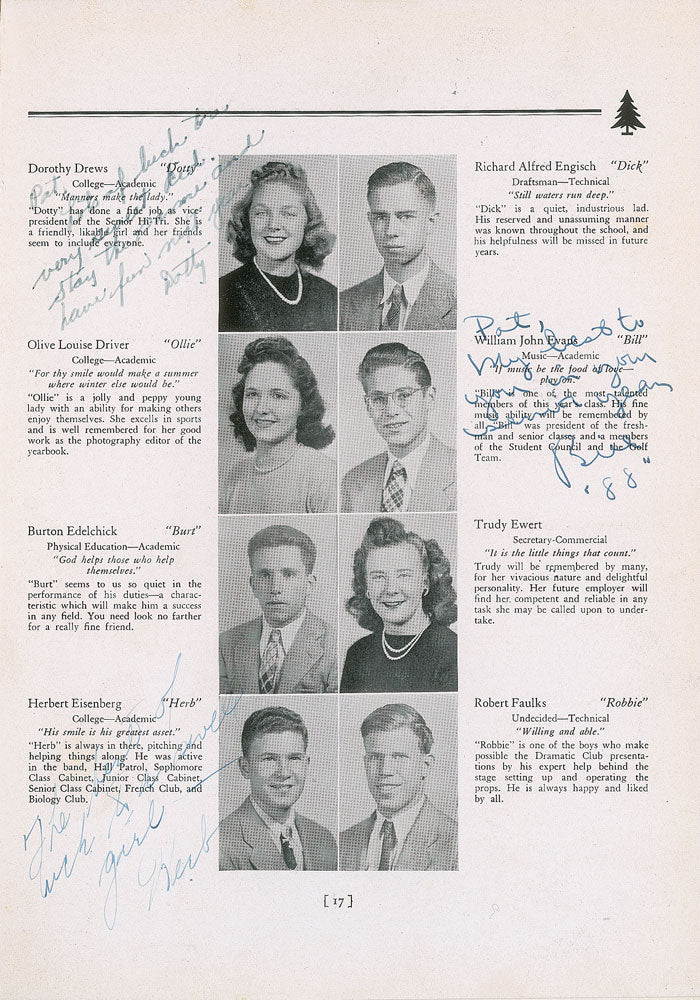 Dorothy Drews "Dotty"
College—Academic
"Manners make the lady."
"Dotty" has done a fine job as vice-
president of the Senior Hi-Tri. She is
a friendly, likable girl and her friends
seem to include everyone.
Pat,
Loads of luck to a
very sweet kid.
Stay the same and
have fun
Dotty
Olive Louise Driver "Ollie"
College—Academic
"For thy smile would make a summer
where winter else would be."
"Ollie" is a jolly and peppy young
lady with an ability for making others
enjoy themselves. She excells in sports
and is well remembered for her good
work as the photography editor of the
yearbook.
Burton Edelchick "Burt"
Physical Education—Academic
"God helps those who help
themselves."
"Burt" seems to us so quiet in the
performance of his duties—a charac-
teristic which will make him a success
in any field. You need look no farther
for a really fine friend.
Herbert Eisenberg "Herb"
College—Academic
"His smile is his greatest asset."
"Herb" is always in there, pitching and
helping things along. He was active
in the band, Hall Patrol, Sophomore
Class Cabinet, Junior Class Cabinet,
Senior Class Cabinet, French Club, and
Biology Club.
The best of
luck to a swell
girl
Herb
Richard Alfred Engisch "Dick"
Draftsman—Technical
"Still waters run deep."
"Dick" is a quiet, industrious lad.
His reserved and unassuming manner
was known throughout the school, and
his helpfulness will be missed in future
years.
William John Evans "Bill"
Music—Academic
"If music be the food of love—
play on."
"Bill" is one of the most talented
members of this year's class. His fine
music ability will be remembered by
all. "Bill" was president of the fresh-
man and senior classes and a members
of the Student Council and the Golf
Team.
Pat,
My best to
you in your
senior year
Bill
"88"
Trudy Ewert
Secretary-Commercial
"It is the little things that count."
Trudy will be remembered by many,
for her vivacious nature and delightful
personality. Her future employer will
find her competent and reliable in any
task she may be called upon to under-
take.
Robert Faulks "Robbie"
Undecided—Technical
"Willing and able."
"Robbie" is one of the boys who make
possible the Dramatic Club presenta-
tions by his expert help behind the
stage setting up and operating the
props. He is always happy and liked
by all.
[17]